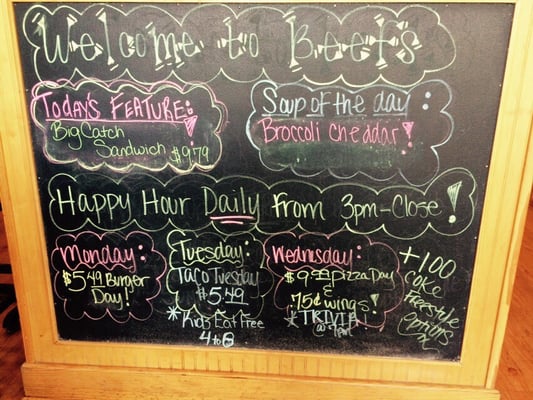 Welcome to Beef's
Today's Feature:
Big Catch
Sandwich $9.79
Soup of the day:
Broccoli Cheddar!
Happy Hour Daily from 3pm-Close!
Monday:
$5.49 Burger
Day!
Tuesday:
Taco Tuesday
$5.49
*Kids Eat Free
4 to 8
Wednesday:
$9.99 Pizza Day
&
75¢ wings!
*TRIVIA
@ 7pm!
+100
coke
freestyle
options